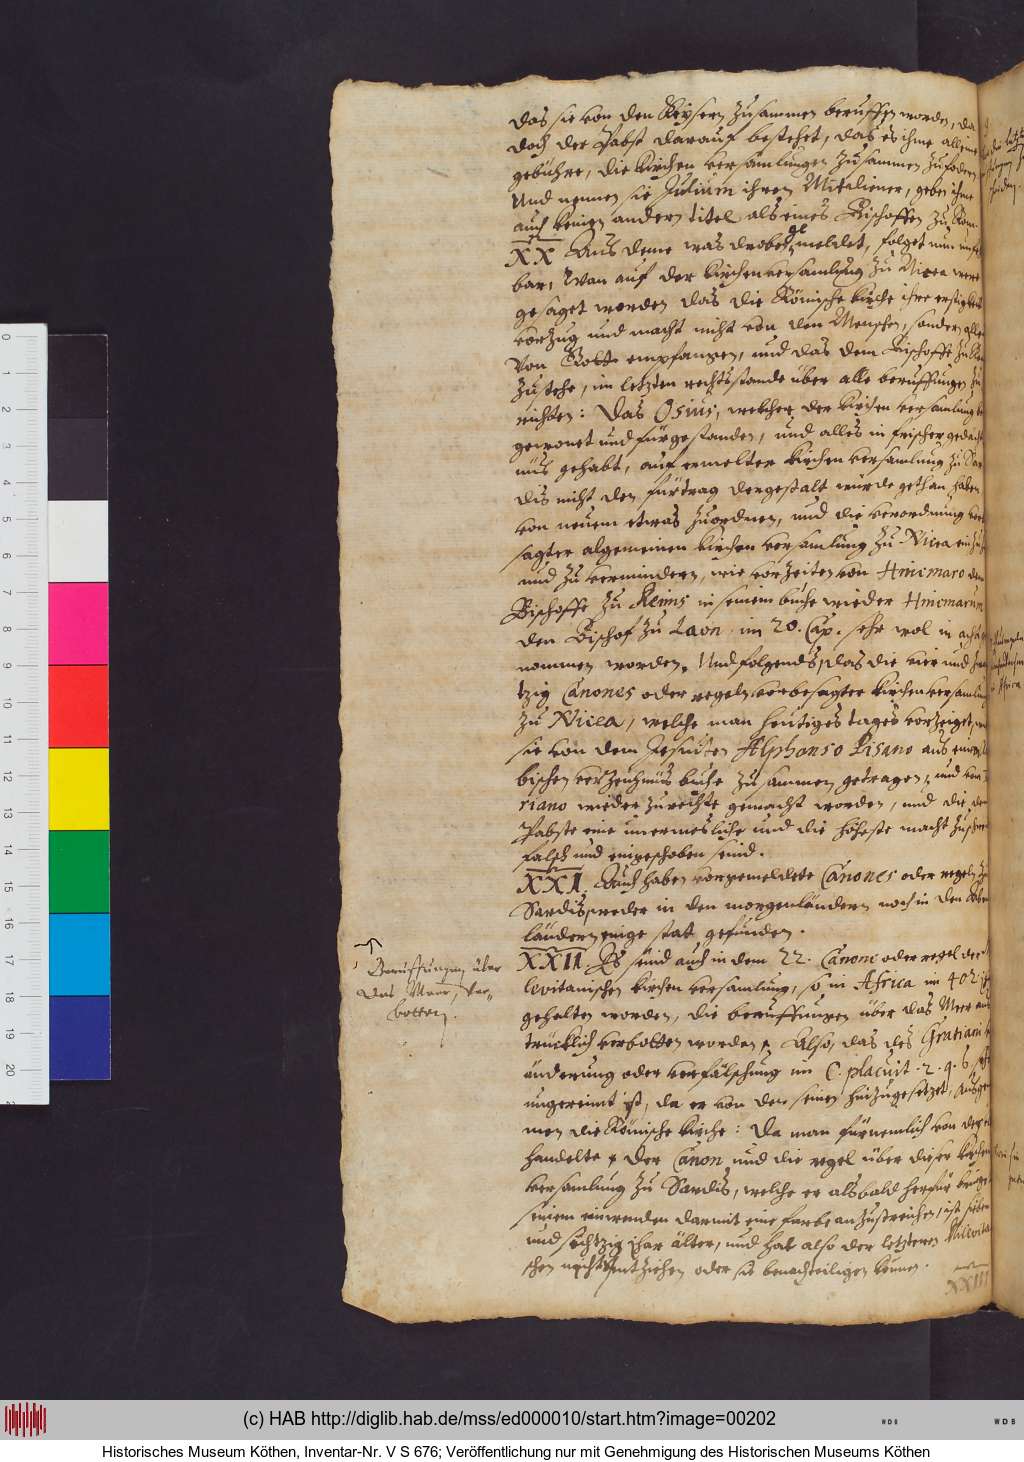 das sie von den Keysern zusammen beruffen worden, da
doch der Pabst darauf bestehet, das es ihme alleine
gebühre, die Kirchen versamlungen zusammen zufodern
Und nennen sie Julium ihren Mitdiener, geben ihme
auch keinen andern titel als eines Bischoffen zu Rom.
XX Aus deme was droben gemeldet, folget nun
bar, Wan auf der Kirchen versamlung zu Nicea were
gesaget worden das die Römische Kirche ihre
vorzug und macht nicht von den Menschen, sondern
von Gott empfangen, und das dem Bischoffe zu
zustehe, im letzten rechtsstande über alle beruffungen zu
richten: Das Osius, welcher der Kirchen versamlung
gewonet und fürgestanden, und alles in frischer gedächt
nüs gehabt, auf ermelter Kirchen versamlung zu Sar
dis nicht den fürtrag dergestalt würde gethan haben
von neuem etwas zuordnen, und die verordnung
sagter algemeinen Kirchen versamlung zu Nicea
und zu vermindern, wie vor Zeiten von Hincmaro dem
Bischoffe zu Reims in seinem buche wieder Hincmarum
den Bischof zu Laon im 20. Cap. sehr wol in acht
nommen worden. Und folgends, das die vier und
tzig Canones oder regeln vorbesagter Kirchen versamlung
zu Nicea, welche man heutiges tages vorzeiget,
sie von dem Jesuiten Alphonso Pisano aus
bischen verzeichnüs buche zusammen getragen, und von
riano wieder zurechte gemacht worden, und die dem
Pabste eine unermesliche und die höheste macht
falsch und eingeschoben seind.
XXI. Auch haben vorgemeldete Canones oder regeln zu
Sardis, weder in den morgenländern noch in den
ländern einige stat gefunden.
XXII. Es seind auch in dem 22. Canone oder regel der
levitanischen Kirchen versamlung, so in Africa im 402
gehalten worden, die beruffungen über das Meer
trücklich verbotten worden. Also, das des Gratiani
änderung oder verfälschung im C. placuit. 2. q. 6
ungereimt ist, da er von den seinen hinzugesetzet,
men die Römische Kirche: Da man fürnemlich von
handelte. Der Canon und die regel über dieser Kirchen
versamlung zu Sardis, welche er alsbald herfür
seinem einwenden darmit eine farbe anzustreichen, ist
und sechtzig Jhar älter, und hat also der letzteren Milevita
schen nichts entziehen oder sie benachteiligen können.
XXIII
Beruffungen über
das Meer, ver-
botten.
(c) HAB http://diglib.hab.de/mss/ed000010/start.htm?image=00202
WDB
Historisches Museum Köthen, Inventar-Nr. V S 676; Veröffentlichung nur mit Genehmigung des Historischen Museums Köthen